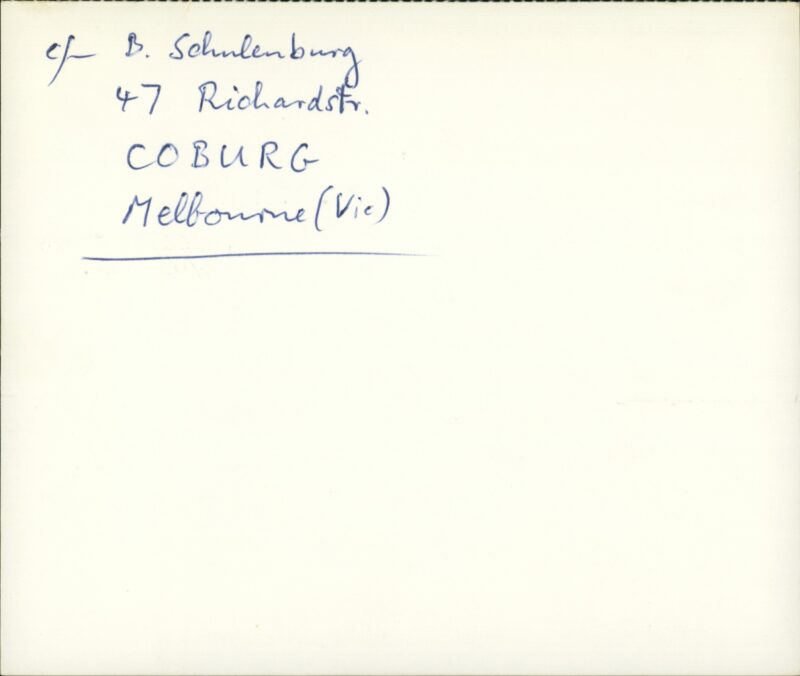 c/- B. Schulenburg
47 Richardstr.
COBURG
Melbourne (Vic)